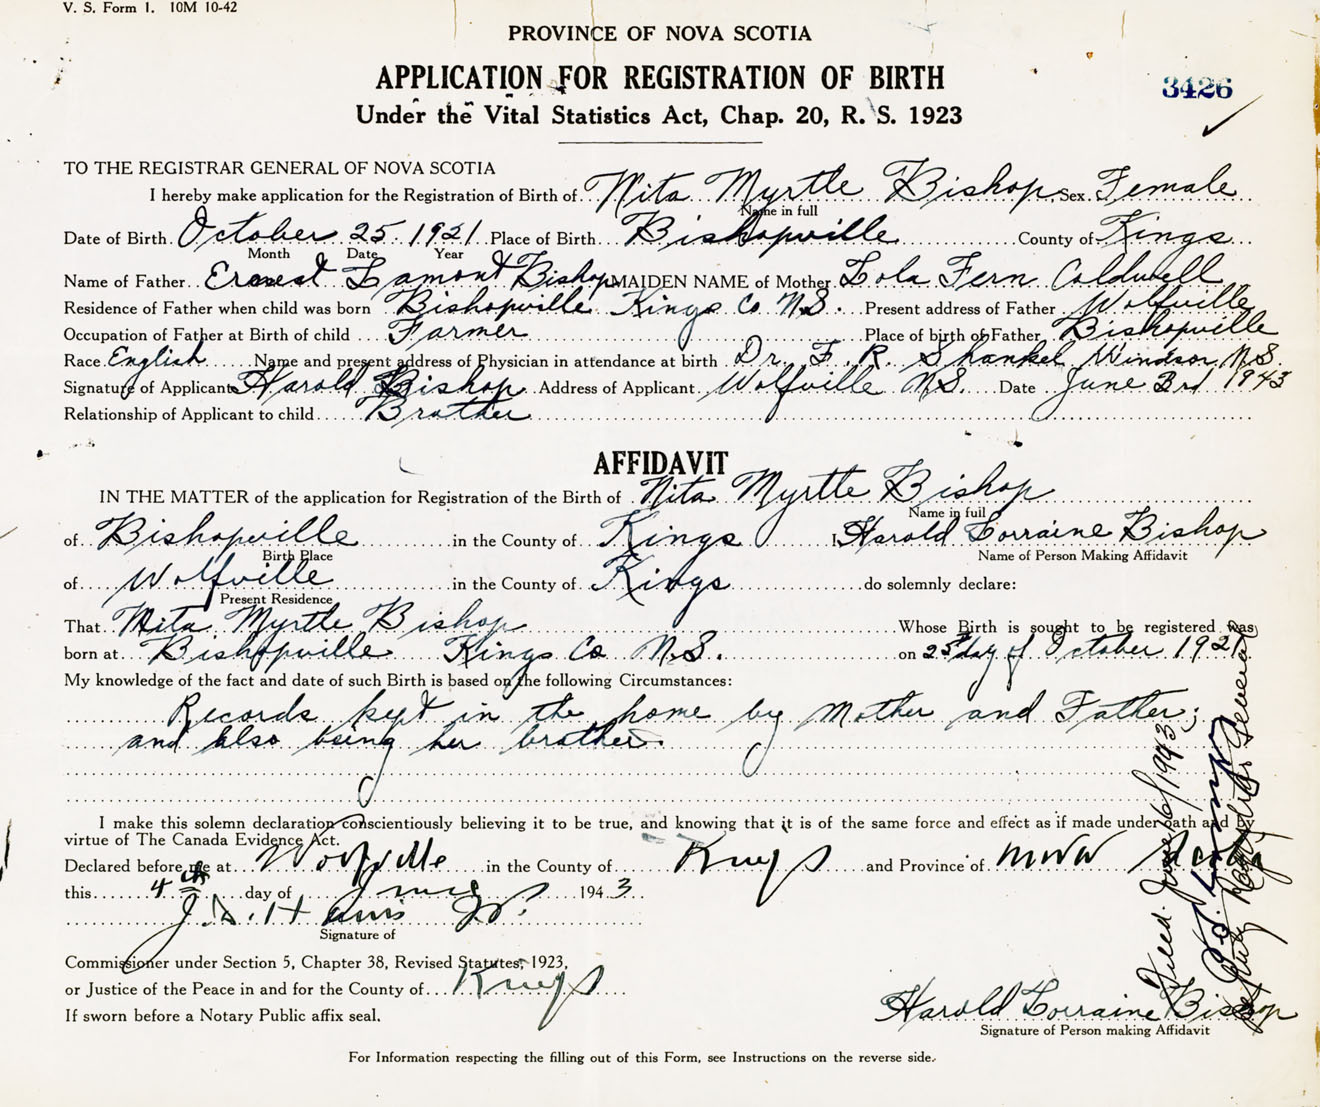 V. S. Form 1. 10M 10-42
PROVINCE OF NOVA SCOTIA
APPLICATION FOR REGISTRATION OF BIRTH
3426
Under the Vital Statistics Act, Chap. 20, R. S. 1923
TO THE REGISTRAR GENERAL OF NOVA SCOTIA
I hereby make application for the Registration of Birth of Nita Myrtle Bishop Sex Female
Name in full
Date of Birth October 25 1921 Place of Birth Bishopville County of Kings
Month Date Year
Name of Father Ernest Lamont Bishop MAIDEN NAME of Mother Lola Fern Coldwell
Residence of Father when child was born Bishopville Kings Co N.S. Present address of Father Wolfville
Occupation of Father at Birth of child Farmer Place of birth of Father Bishopville
Race English Name and present address of Physician in attendance at birth Dr. F. R. Shankel Windsor N.S.
Signature of Applicant Harold Bishop Address of Applicant Wolfville N.S. Date June 3rd 1943
Relationship of Applicant to child Brother
AFFIDAVIT
IN THE MATTER of the application for Registration of the Birth of Nita Myrtle Bishop
Name in full
of Bishopville in the County of Kings I Harold Lorraine Bishop
Birth Place Name of Person Making Affidavit
of Wolfville in the County of Kings do solemnly declare:
Present Residence
That Nita Myrtle Bishop Whose Birth is sought to be registered was
born at Bishopville Kings Co N.S. on 25 day of October 1921
My knowledge of the fact and date of such Birth is based on the following Circumstances:
Records kept in the home by Mother and Father;
and also being her brother.
I make this solemn declaration conscientiously believing it to be true, and knowing that it is of the same force and effect as if made under oath and by
virtue of The Canada Evidence Act.
Declared before me at Wolfville in the County of Kings and Province of Nova Scotia
this 4th day of June 1943
Signature of
Commissioner under Section 5, Chapter 38, Revised Statutes, 1923,
or Justice of the Peace in and for the County of Kings
If sworn before a Notary Public affix seal.
Harold Lorraine Bishop
Signature of Person making Affidavit
For Information respecting the filling out of this Form, see Instructions on the reverse side.
Filed June 16/1943
Deputy Registrar General